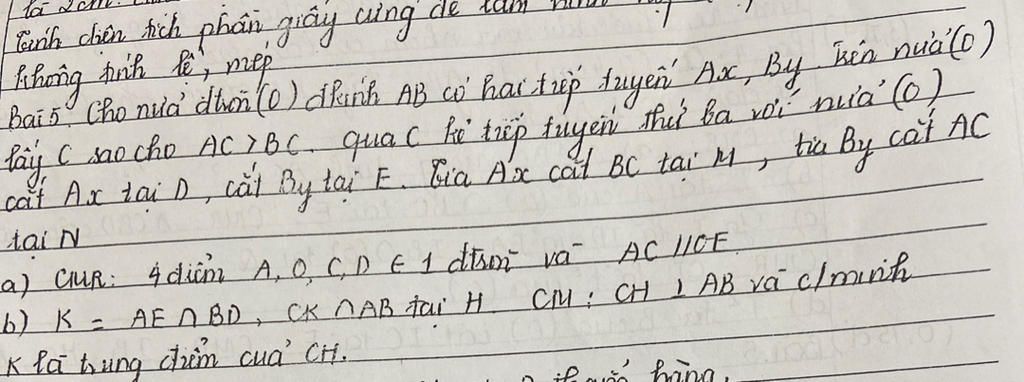 là 2cm.
Tính diện tích phần giấy cứng để làm
không tính lề, mép
Bài 5: Cho nửa đtròn (O) đkính AB có hai tiếp tuyến Ax, By. Trên nửa (O)
lấy C sao cho AC > BC. qua C kẻ tiếp tuyến thứ ba với nửa (O)
cắt Ax tại D, cắt By tại E. Tia Ax cắt BC tại M, tia By cắt AC
tại N
a) CMR: 4 điểm A, O, C, D ∈ 1 đtròn và AC // OE
b) K = AE ∩ BD, CK ∩ AB tại H CM: CH ⊥ AB và c/minh
K là trung điểm của CH.
hàng.